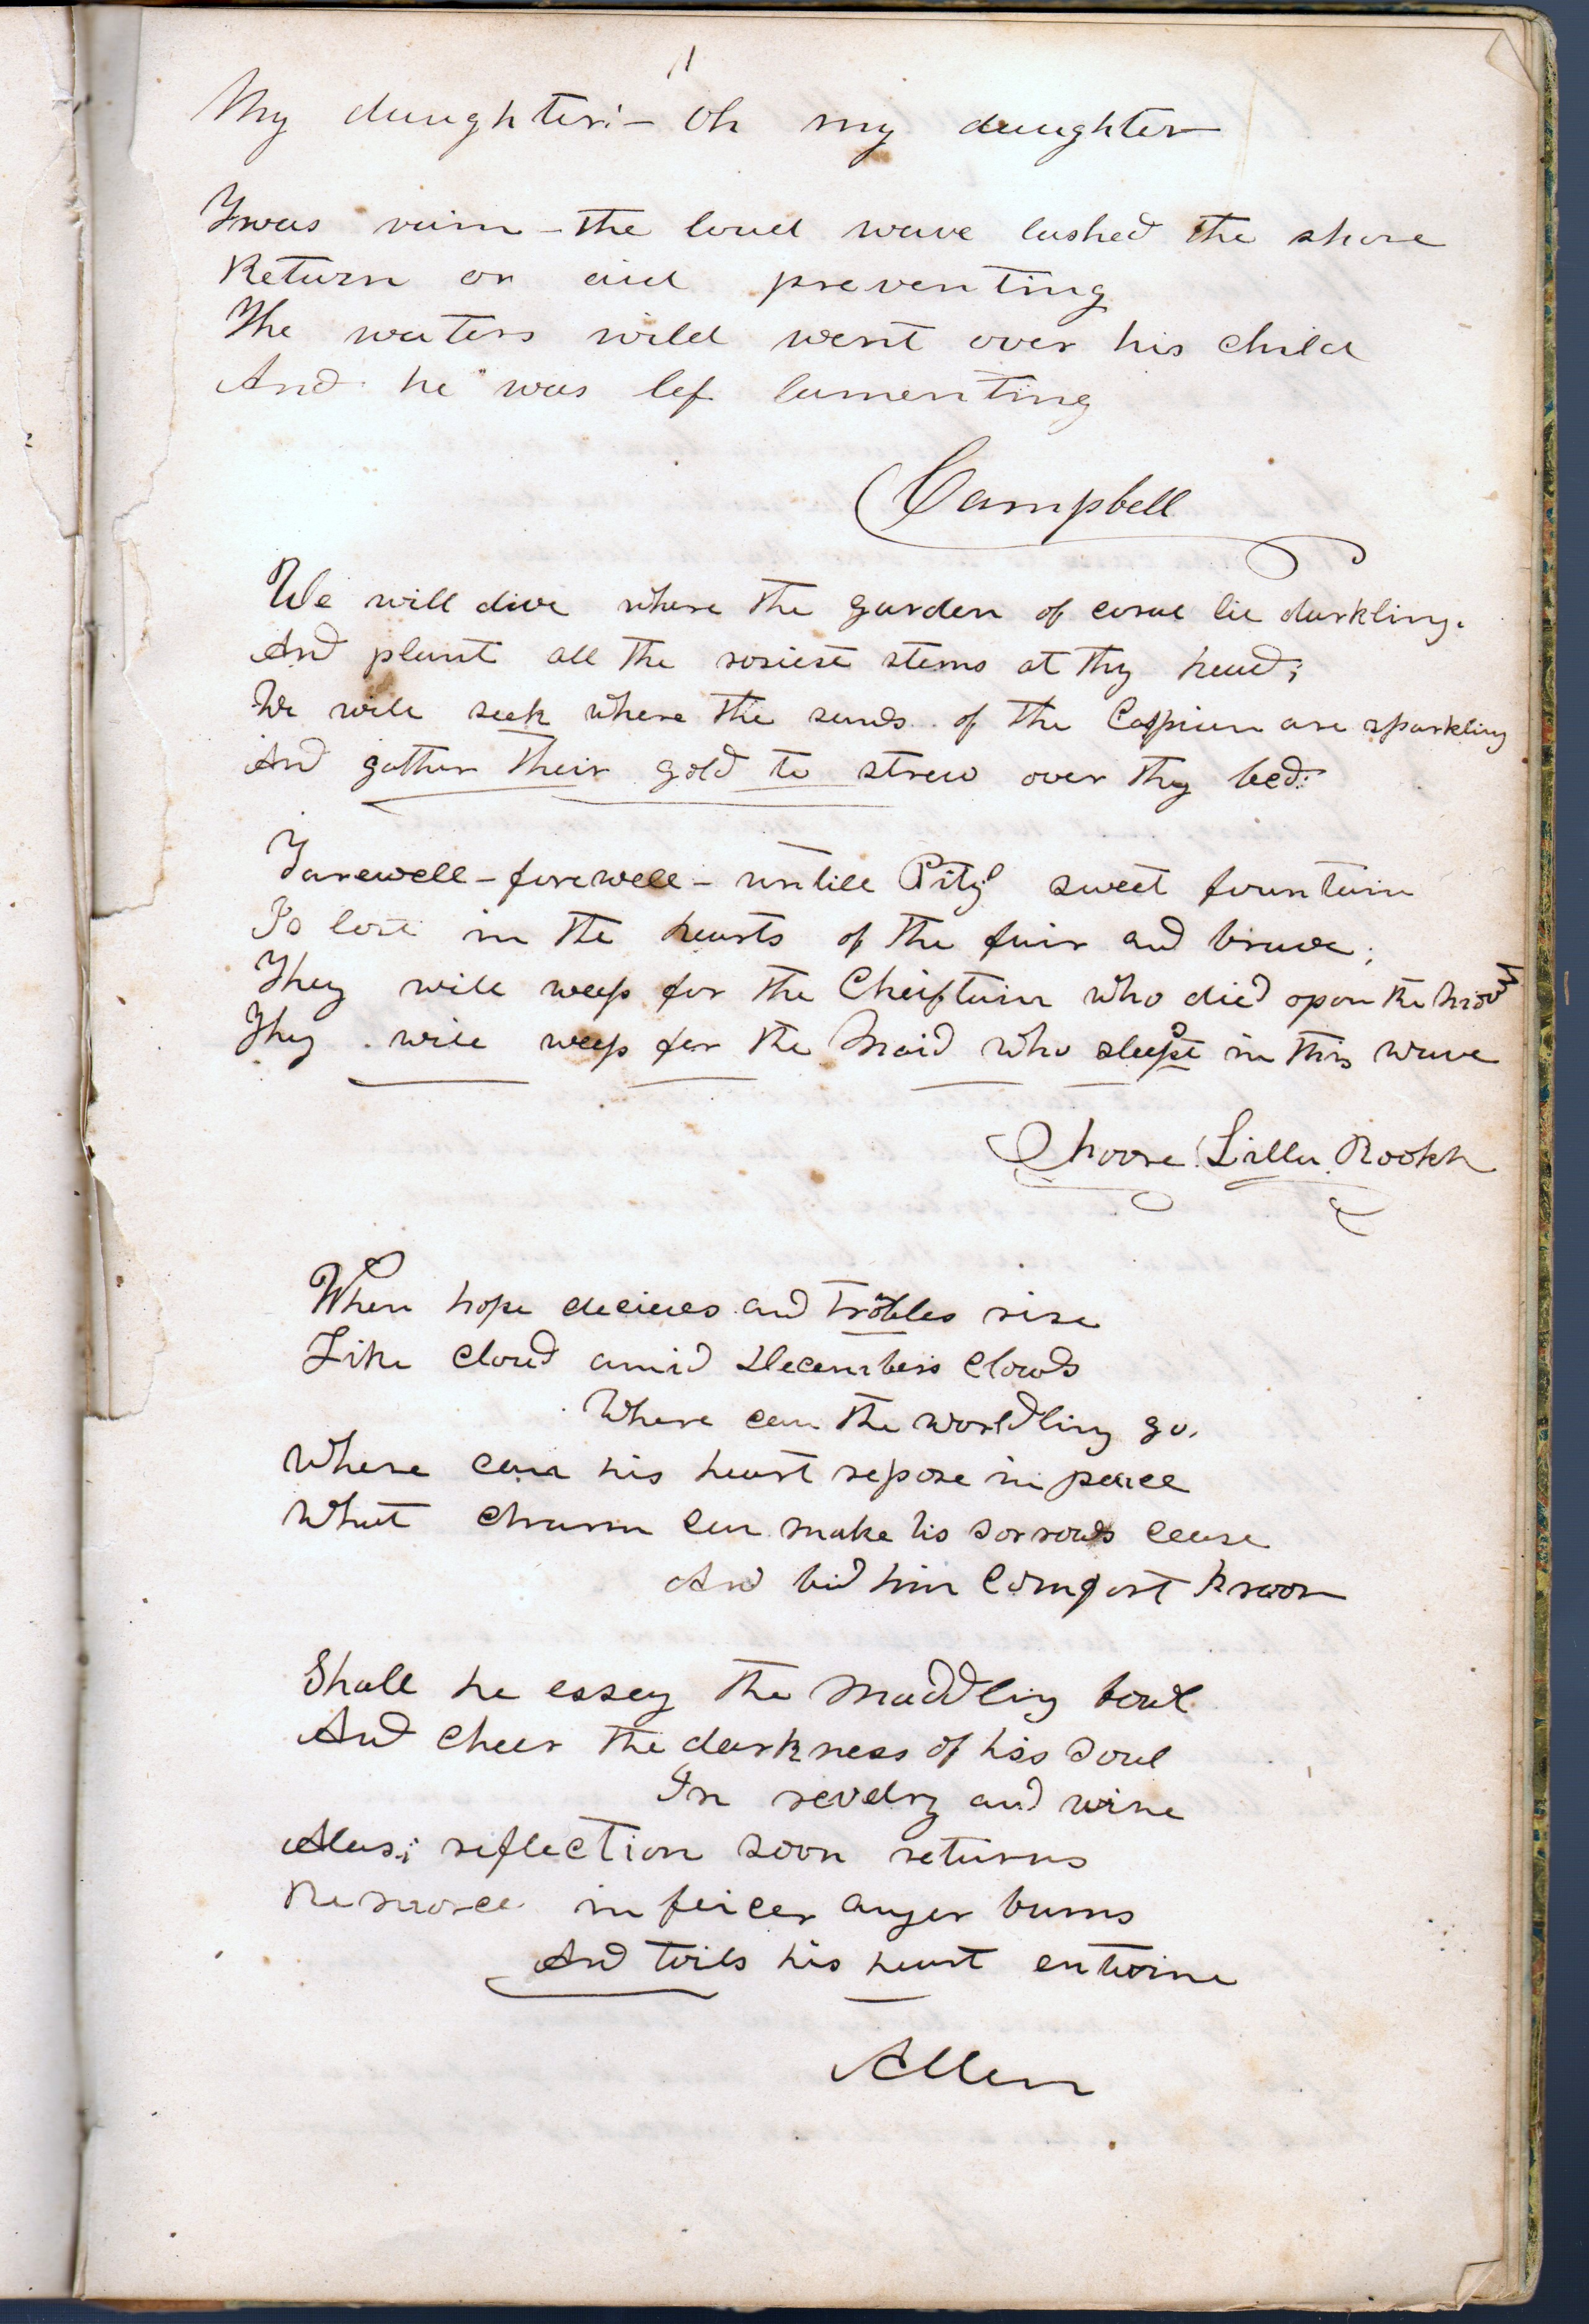 My daughter:- Oh my daughter
Twas vain - the loud wave lashed the shore
Return or aid preventing
The waters wild went over his child
And he was lef lamenting
Campbell
We will dive where the garden of corul lie darkling.
And plant all the rosiest stems at thy head;
We will seek where the sands of the Caspian are sparkling
And gather their gold to strew over thy bed:
Farewell - farewell - untill Pity' sweet fountain
Is lost in the hearts of the fair and brave;
They will weep for the Cheiftain who died opon the
They will weep for the Maid who sleepst in this wave
Lalla Rookh
When hope decieves and trobles rise
Like cloud amid Decembers clouds
Where can the worldling go.
Where can his heart repose in peace
What charm can make his sorrows cease
And bid him comfort know
Shall he essey the maddling bowl
And cheer the darkness of his soul
In revelry and wine
Alas; reflection soon returns
Remorce in feicer anger burns
And toils his heart entwine
Allen